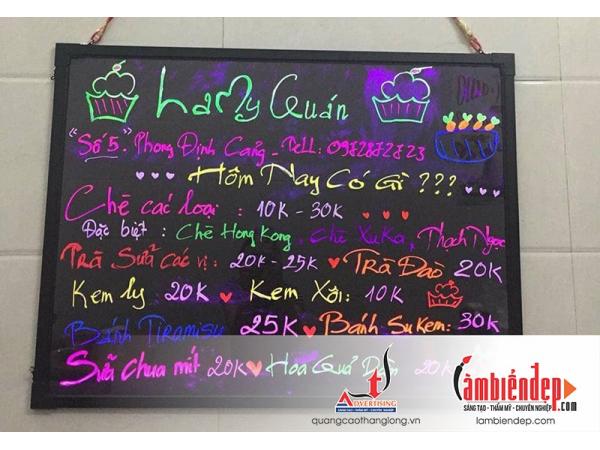 LaMy Quán
"Số 5". Phong Định Cảng - Tell: 0972872723
... Hôm Nay Có Gì ??? ...
Chè các loại : 10K - 30K
Đặc biệt : Chè Hong Kong, Chè XuKa, Thạch Ngọc
Trà Sữa Các vị : 20K - 25K ♥ Trà Đào 20K
Kem ly 20K ♥ Kem Xôi: 10K
Bánh Tiramisu 25K ♥ Bánh Su kem: 30K
Sữa chua mít 20K ♥ Hoa Quả Dầm 20K
ADVERTISING
SÁNG TẠO - THẨM MỸ - CHUYÊN NGHIỆP
quangcaothanglong.vn
Làmbiểnđẹp.com
SÁNG TẠO - THẨM MỸ - CHUYÊN NGHIỆP
lambiendep.com